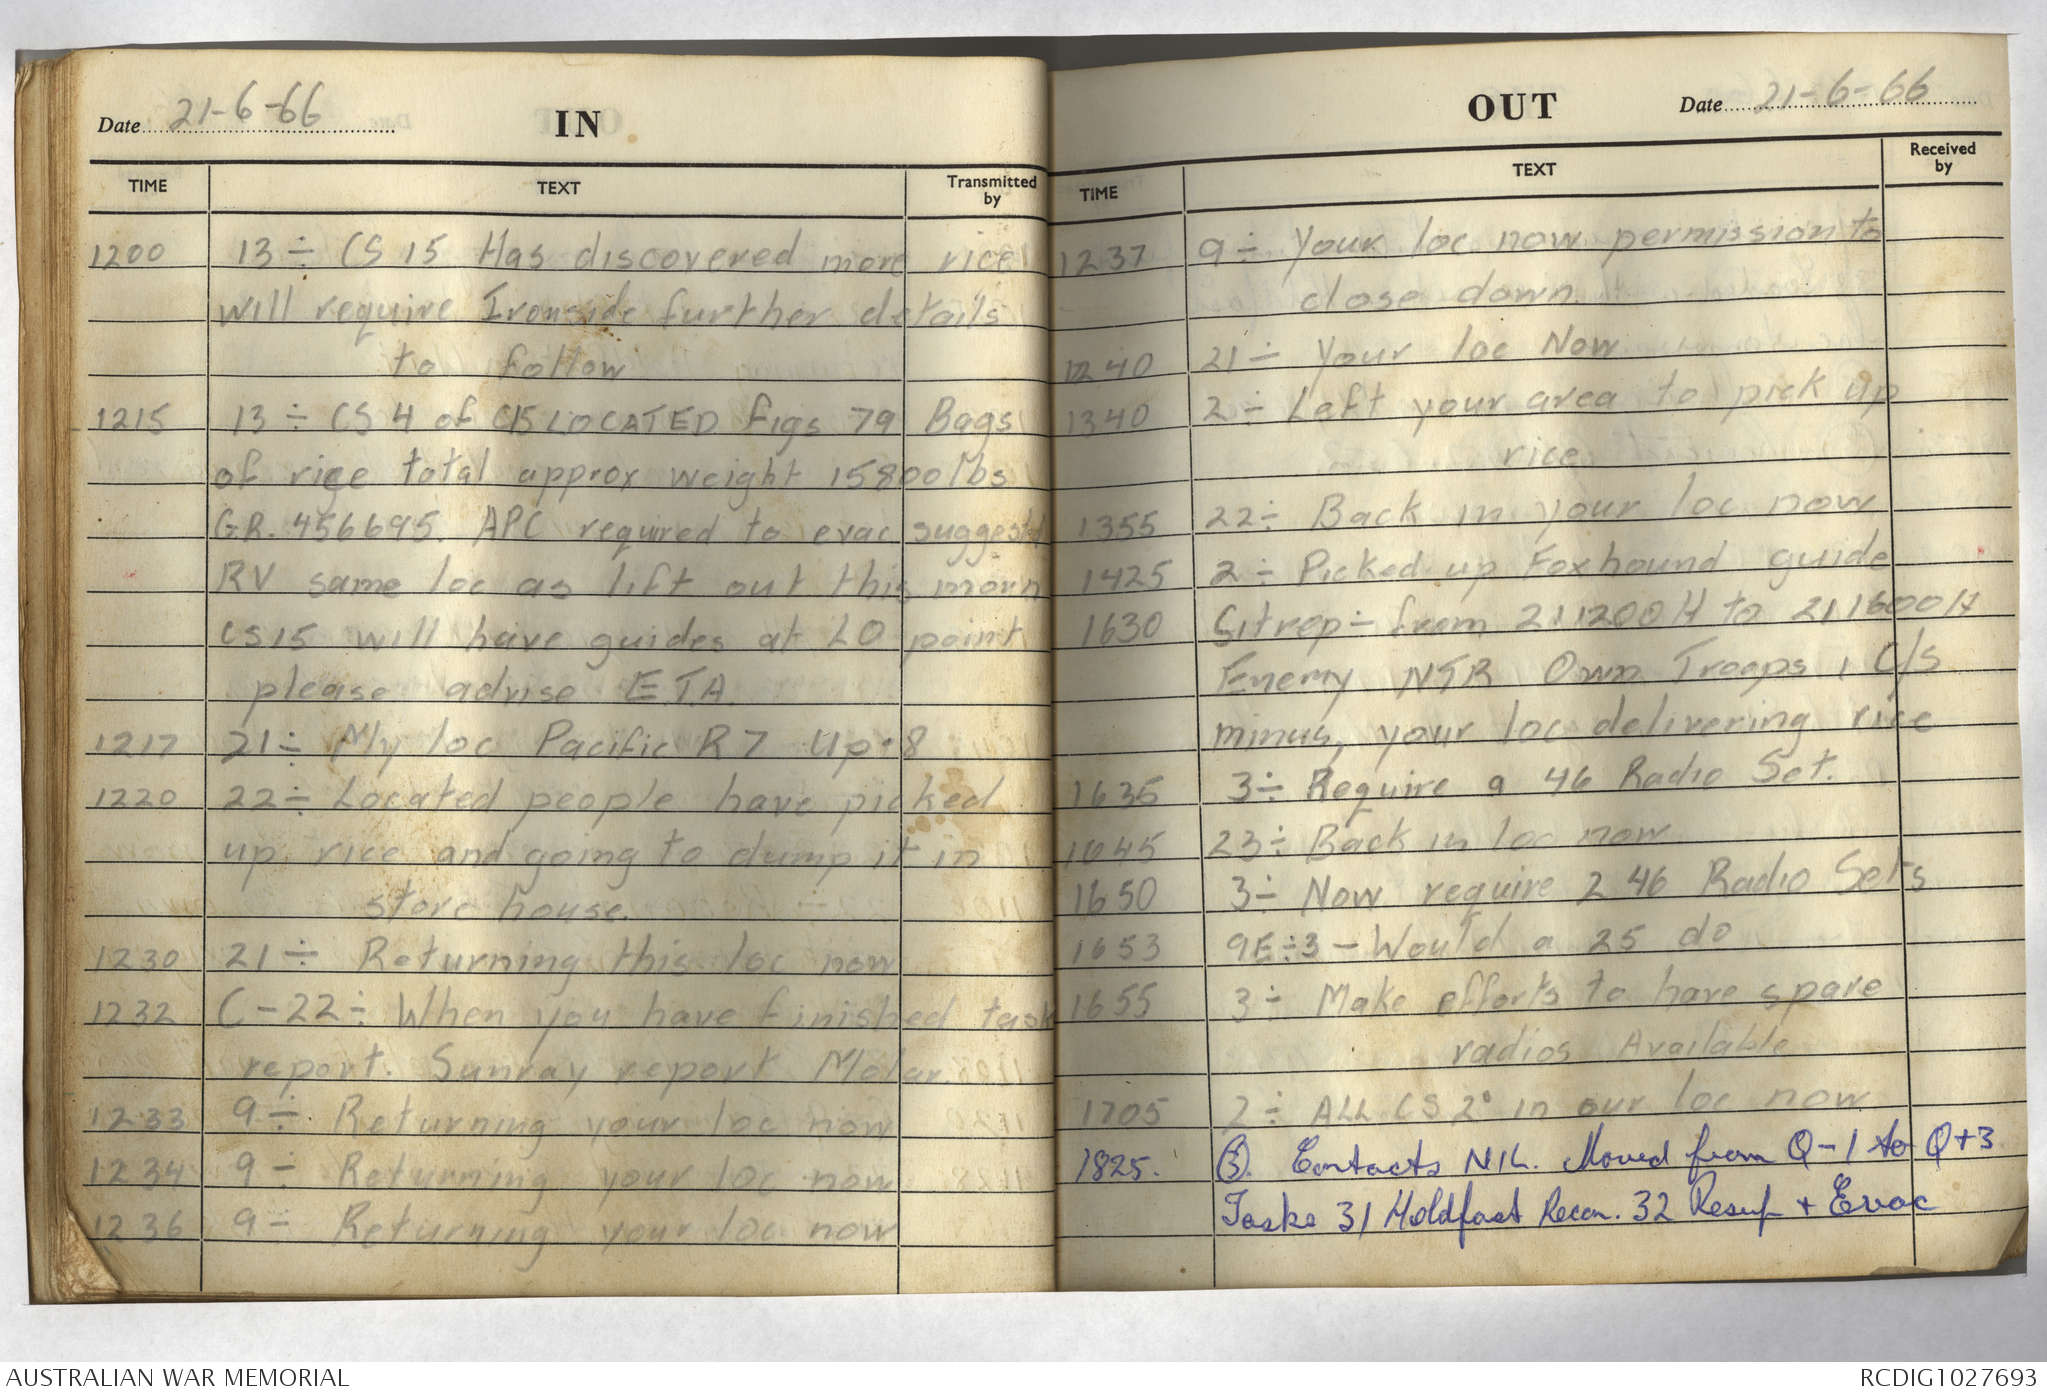 Date 21-6-66 IN
TIME TEXT Transmitted by
1200 13 ÷ CS 15 Has discovered more rice
will require Ironside further details
to follow
1215 13 ÷ CS 4 of C15 LOCATED figs 79 Bags
of rice total approx weight 15800 lbs
GR. 456695. APC required to evac suggested
RV same loc as lift out this morn
CS15 will have guides at LO point
please advise E.T.A.
1217 21 ÷ My loc Pacific R7 Up. 8
1220 22 ÷ Located people have picked
up rice and going to dump it in
store house.
1230 21 ÷ Returning this loc now
1232 C-22 ÷ When you have finished task
report. Sunray report Molar.
1233 9 ÷ Returning your loc now
1234 9 ÷ Returning your loc now
1236 9 - Returning your loc now
OUT Date 21-6-66
TIME TEXT Received by
1237 9 ÷ Your loc now permission to
close down.
1240 21 ÷ Your loc Now
1340 2 ÷ Left your area to pick up
rice
1355 22 ÷ Back in your loc now
1425 2 ÷ Picked up Foxhound guide
1630 Sitrep ÷ from 211200H to 211600H
Enemy NTR Own Troops 1 C/S
minus, your loc delivering rice
1635 3 ÷ Require a 46 Radio Set.
1645 23 ÷ Back in loc now
1650 3 ÷ Now require 2 46 Radio Sets
1653 9E ÷ 3 - Would a 25 do
1655 3 ÷ Make efforts to have spare
radios Available
1705 2 ÷ ALL CS 2° in our loc now
1825. (3). Contacts NIL. Moved from Q-1 to Q+3
Tasks 31 Holdfast Recon. 32 Resup + Evac
AUSTRALIAN WAR MEMORIAL RCDIG1027693